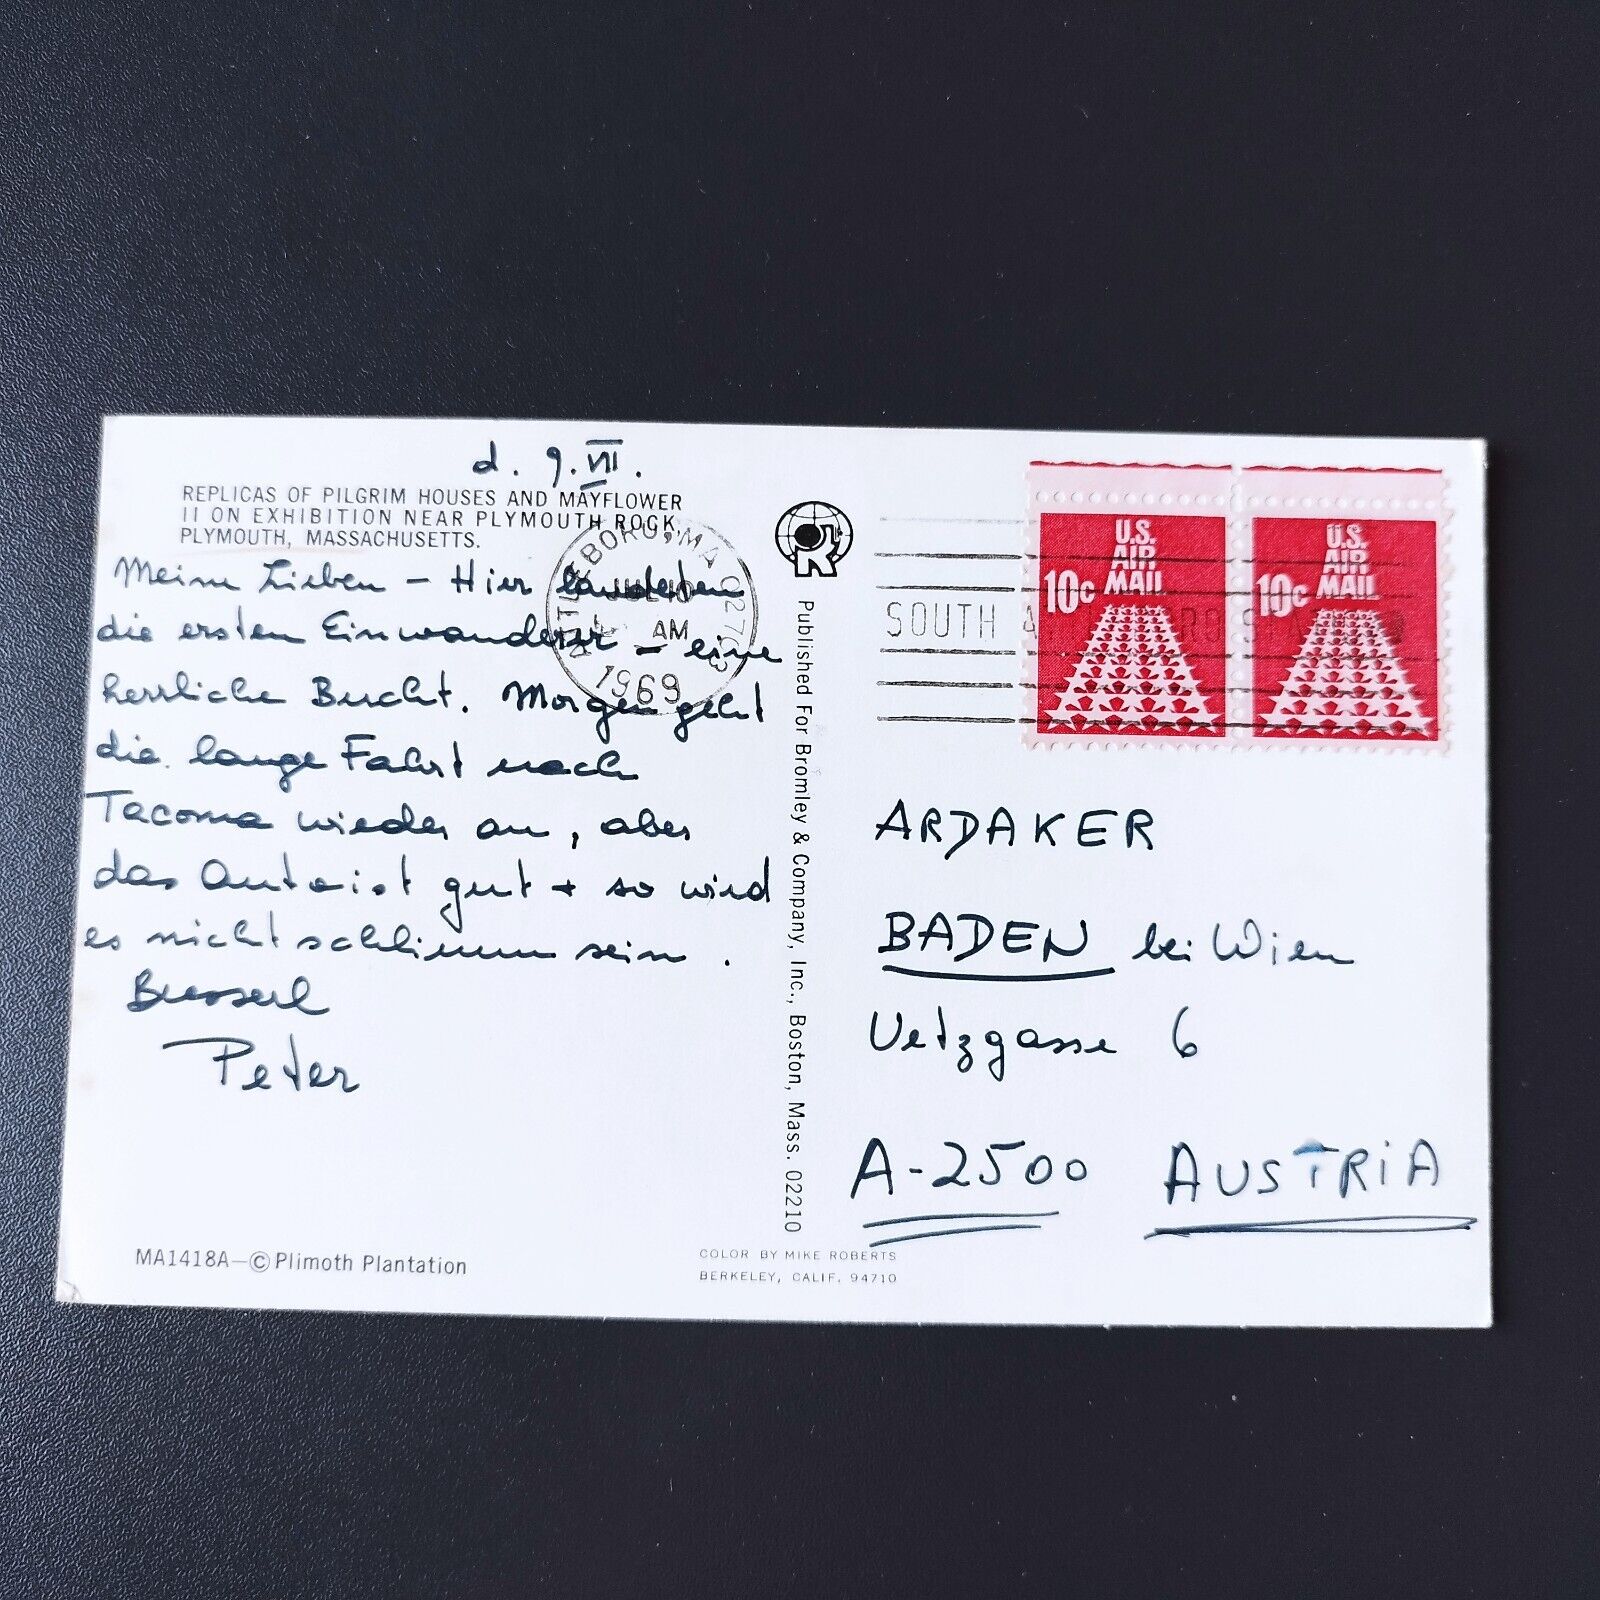 d. 9. VII.
REPLICAS OF PILGRIM HOUSES AND MAYFLOWER
II ON EXHIBITION NEAR PLYMOUTH ROCK,
PLYMOUTH, MASSACHUSETTS.
Meine Lieben – Hier landeten
die ersten Einwanderer – eine
herrliche Bucht. Morgen geht
die lange Fahrt nach
Tacoma wieder an, aber
das Auto ist gut + so wird
es nicht schlimm sein.
Busserl
Peter
MA1418A—© Plimoth Plantation
COLOR BY MIKE ROBERTS
BERKELEY, CALIF. 94710
Published For Bromley & Company, Inc., Boston, Mass. 02210
ATTLEBORO, MA 02703
JUL 10
AM
1969
SOUTH
U.S.
AIR
MAIL
10c
U.S.
AIR
MAIL
10c
ARDAKER
BADEN bei Wien
Uetzgasse 6
A-2500 AUSTRIA